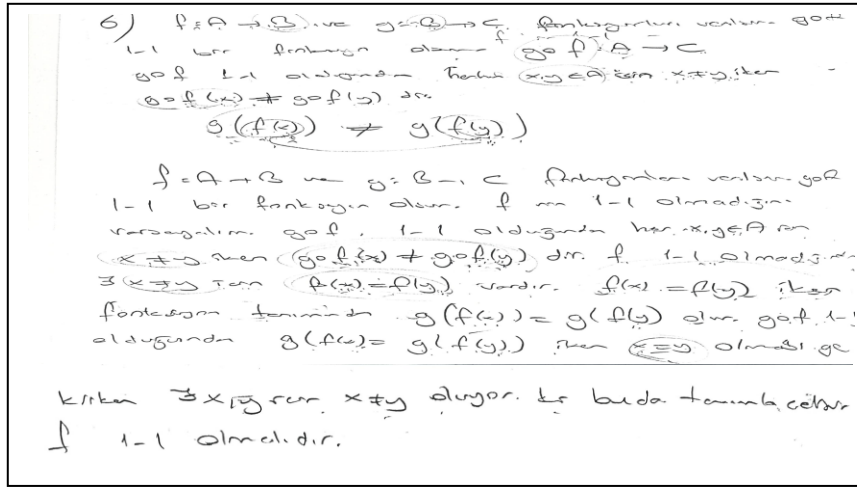 6) f: A → B ve g: B → C fonksiyonları verilsin. gof
1-1 bir fonksiyon olsun gof: A → C
gof 1-1 olduğundan x,y ∈ A için x≠y iken
gof(x) ≠ gof(y) dir.
g(f(x)) ≠ g(f(y))
f = A → B ve g: B → C fonksiyonları verilsin. gof
1-1 bir fonksiyon olsun. f nın 1-1 olmadığını
varsayalım. gof, 1-1 olduğundan her x,y ∈ A için
x≠y iken gof(x) ≠ gof(y) dir. f 1-1 olmadığından
∃ x≠y için f(x) = f(y) vardır. f(x) = f(y) iken
fonksiyon tanımından g(f(x)) = g(f(y) olur. gof 1-1
olduğundan g(f(x) = g(f(y)) iken x=y olması ge
kirken ∃x,y için x≠y oluyor. buda tanımla çelişir
f 1-1 olmalıdır.